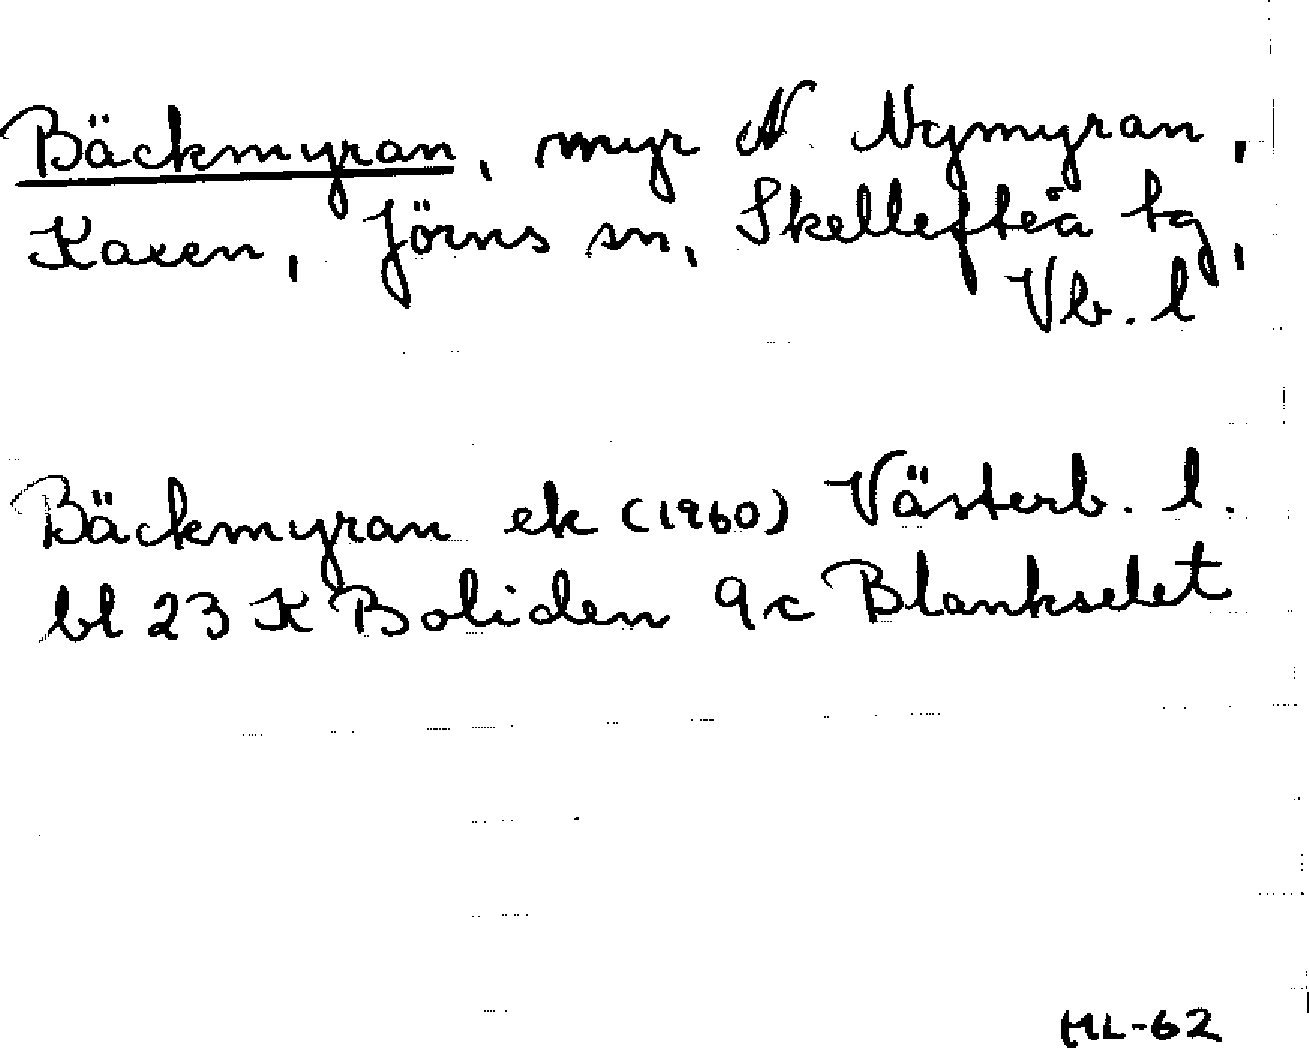 Bäckmyran, myr N. Nymyran,
Kaxen, Jörns sn, Skellefteå tg,
Vb. l
Bäckmyran ek (1960) Västerb. l.
bl 23 K Boliden 9c Blankselet
HL-62